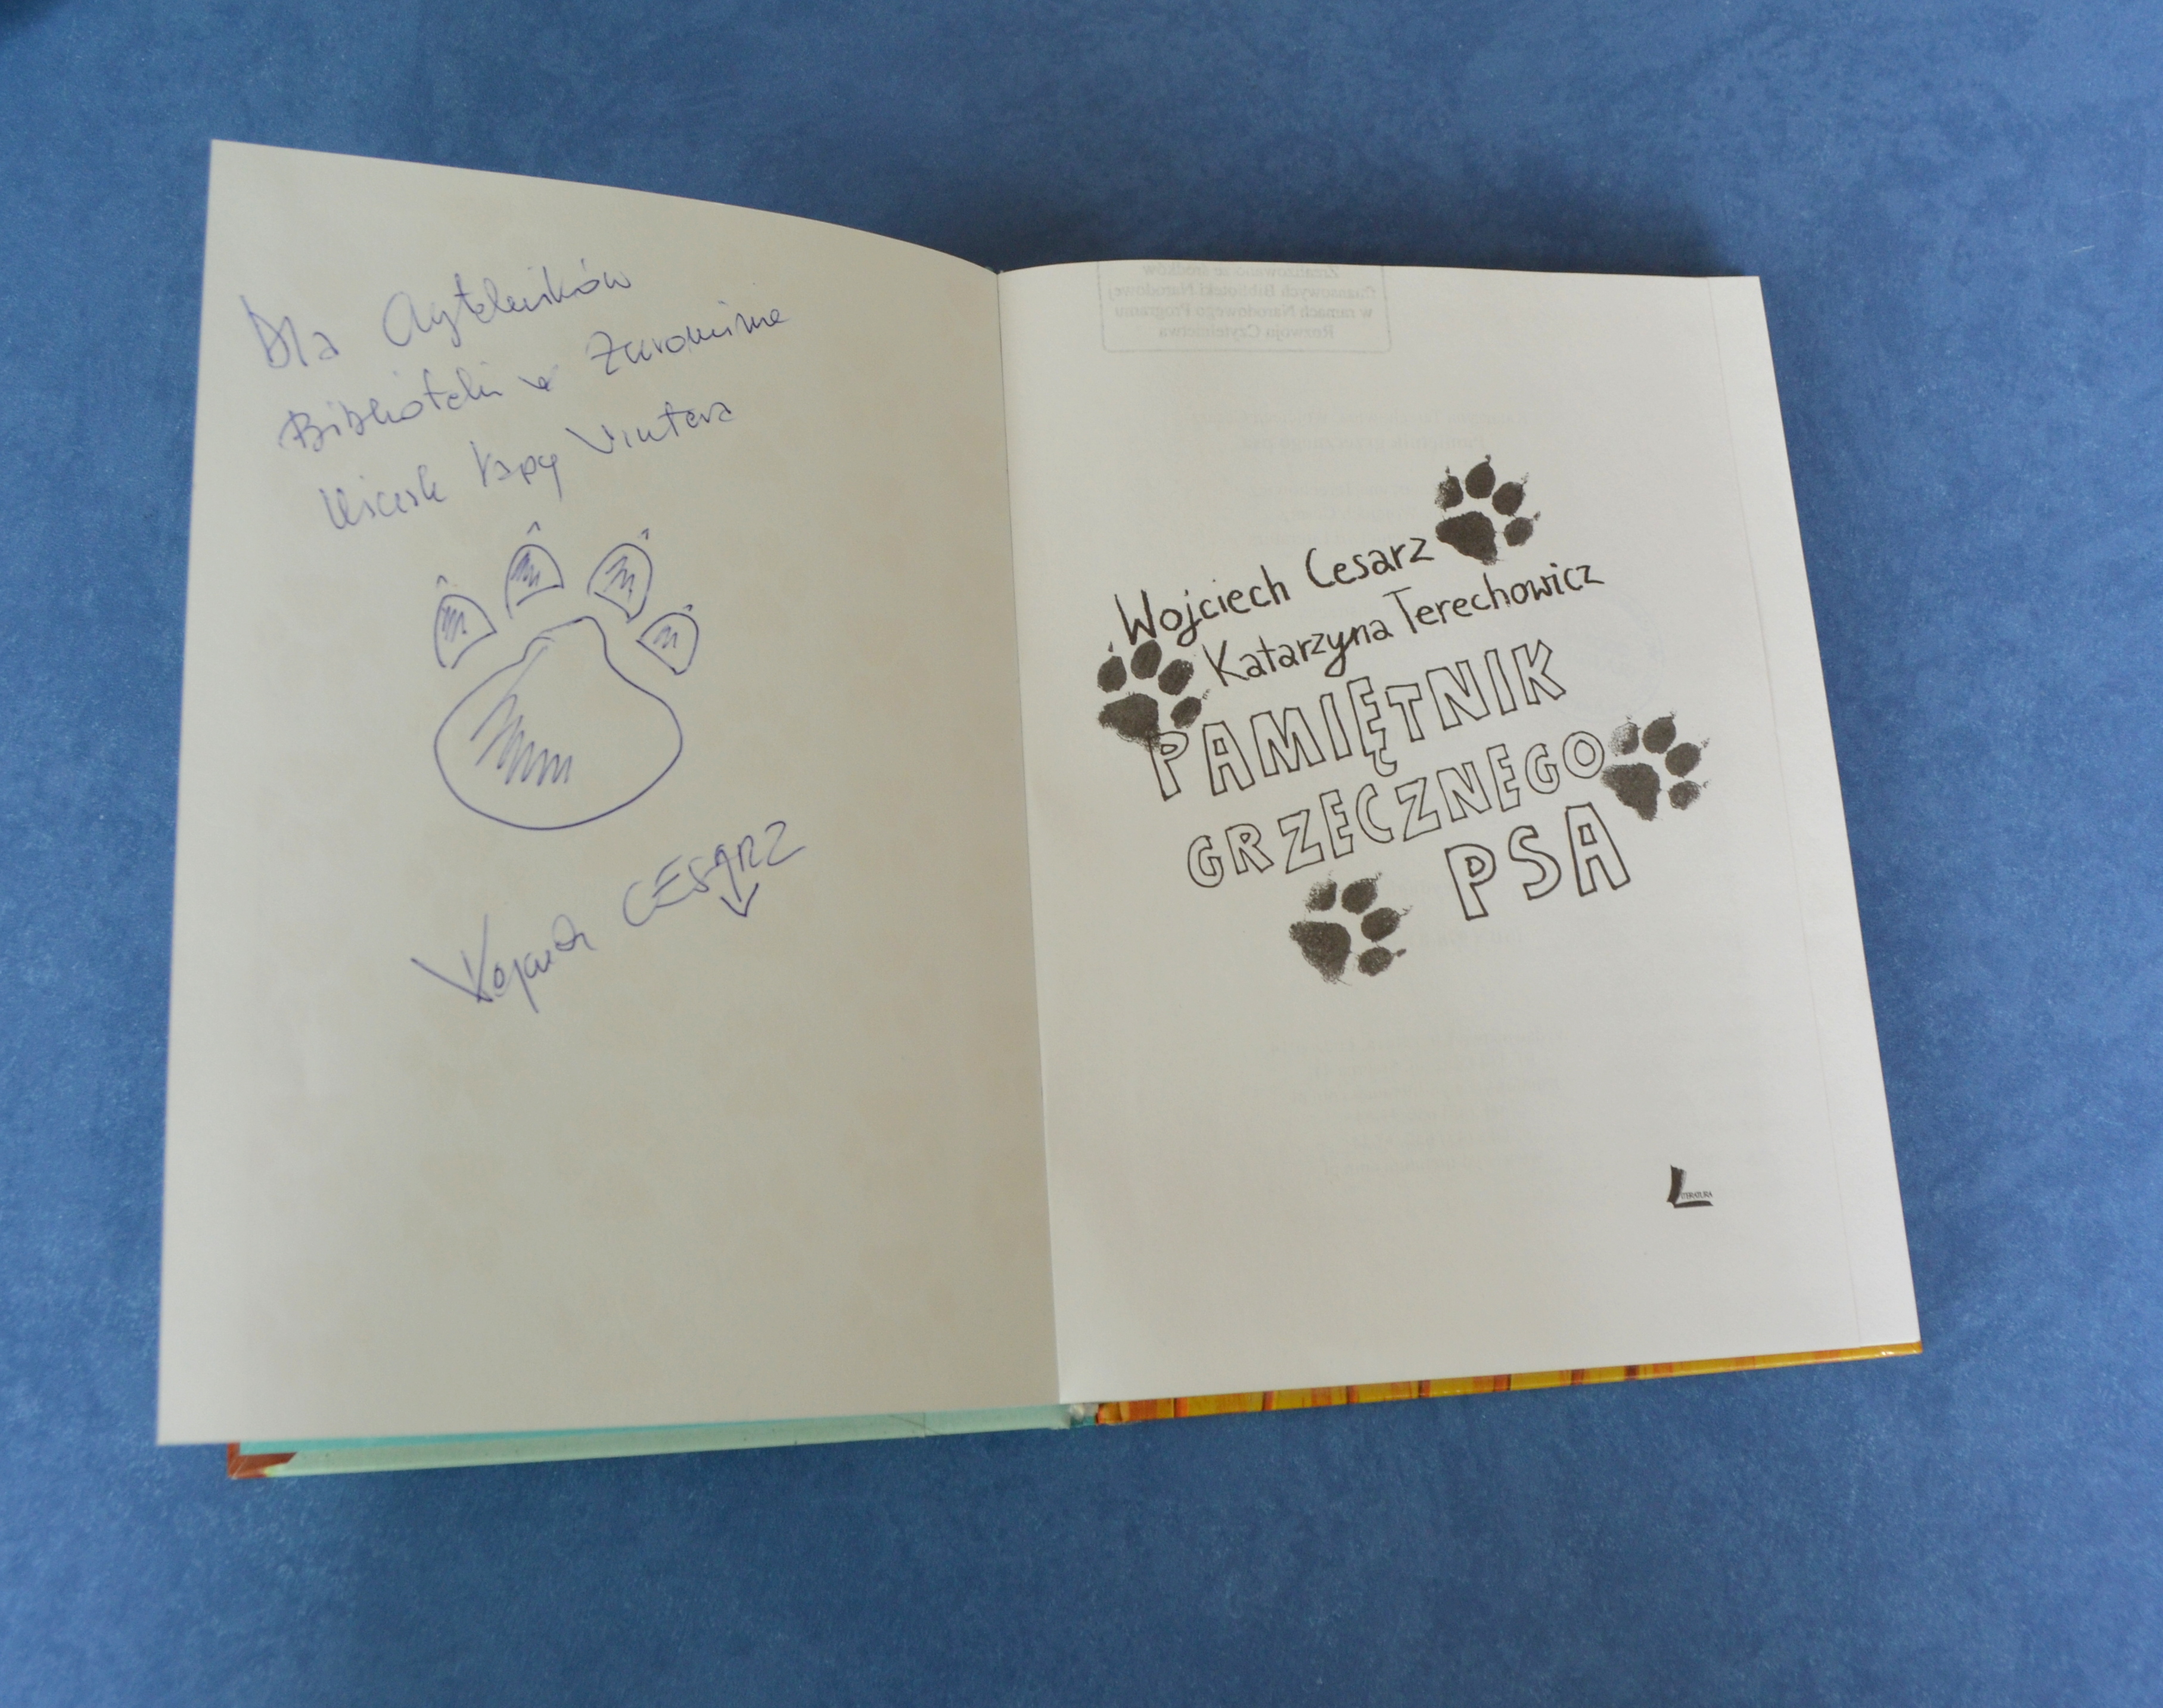 Dla Czytelników
Biblioteki w Żurominie
ucisk łapy Wintera
Wojciech CESARZ
Zrealizowano ze środków
finansowych Biblioteki Narodowej
w ramach Narodowego Programu
Rozwoju Czytelnictwa
Wojciech Cesarz
Katarzyna Terechowicz
PAMIĘTNIK
GRZECZNEGO
PSA
LITERATURA